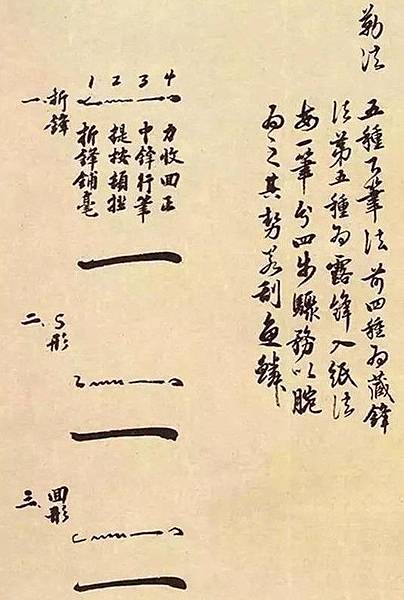 勒法
五種下筆法前四種為藏鋒
法第五種為露鋒入紙法
每一筆分四步驟務以腕
為之其勢若刮魚鱗
一、折鋒
1 2 3 4
力收回正
中鋒行筆
提按頓挫
折鋒鋪毫
二、S形
三、回形